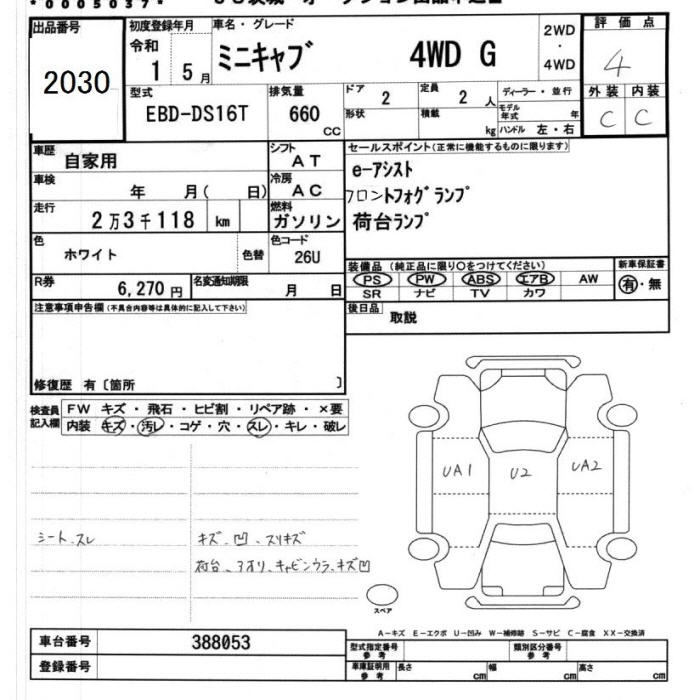 *0005037*
出品番号
2030
初度登録年月
令和
1 5月
車名・グレード
ミニキャブ 4WD G
2WD
・
4WD
評価点
4
外装 内装
C C
型式
EBD-DS16T
排気量
660
CC
ドア
2
形状
定員
2 人
積載
kg
ディーラー・並行
モデル年式 年
ハンドル 左・右
車歴
自家用
シフト
AT
車検
年 月( 日)
冷房
AC
走行
2万3千118 km
燃料
ガソリン
色
ホワイト
色替
色コード
26U
R券
6,270円
名変通知期限
月 日
セールスポイント(正常に機能するものに限ります)
e-アシスト
フロントフォグランプ
荷台ランプ
装備品 (純正品に限り○をつけてください)
PS PW ABS エアB AW
SR ナビ TV カワ
新車保証書
有・無
後日品
取説
注意事項申告欄(不具合内容等は具体的に記入して下さい)
修復歴 有〔箇所 〕
検査員
記入欄
FW キズ・飛石・ヒビ割・リペア跡・×要
内装 キズ・汚レ・コゲ・穴・スレ・キレ・破レ
シート、スレ
キズ、凹、スリキズ
荷台、アオリ、キャビンウラ、キズ凹
UA1
U2
UA2
スペア
A-キズ E-エクボ U-凹み W-補修跡 S-サビ C-腐食 XX-交換済
車台番号
388053
登録番号
型式指定番号
参考
類別区分番号
参考
車庫証明用
参考
長さ cm
幅 cm
高さ cm